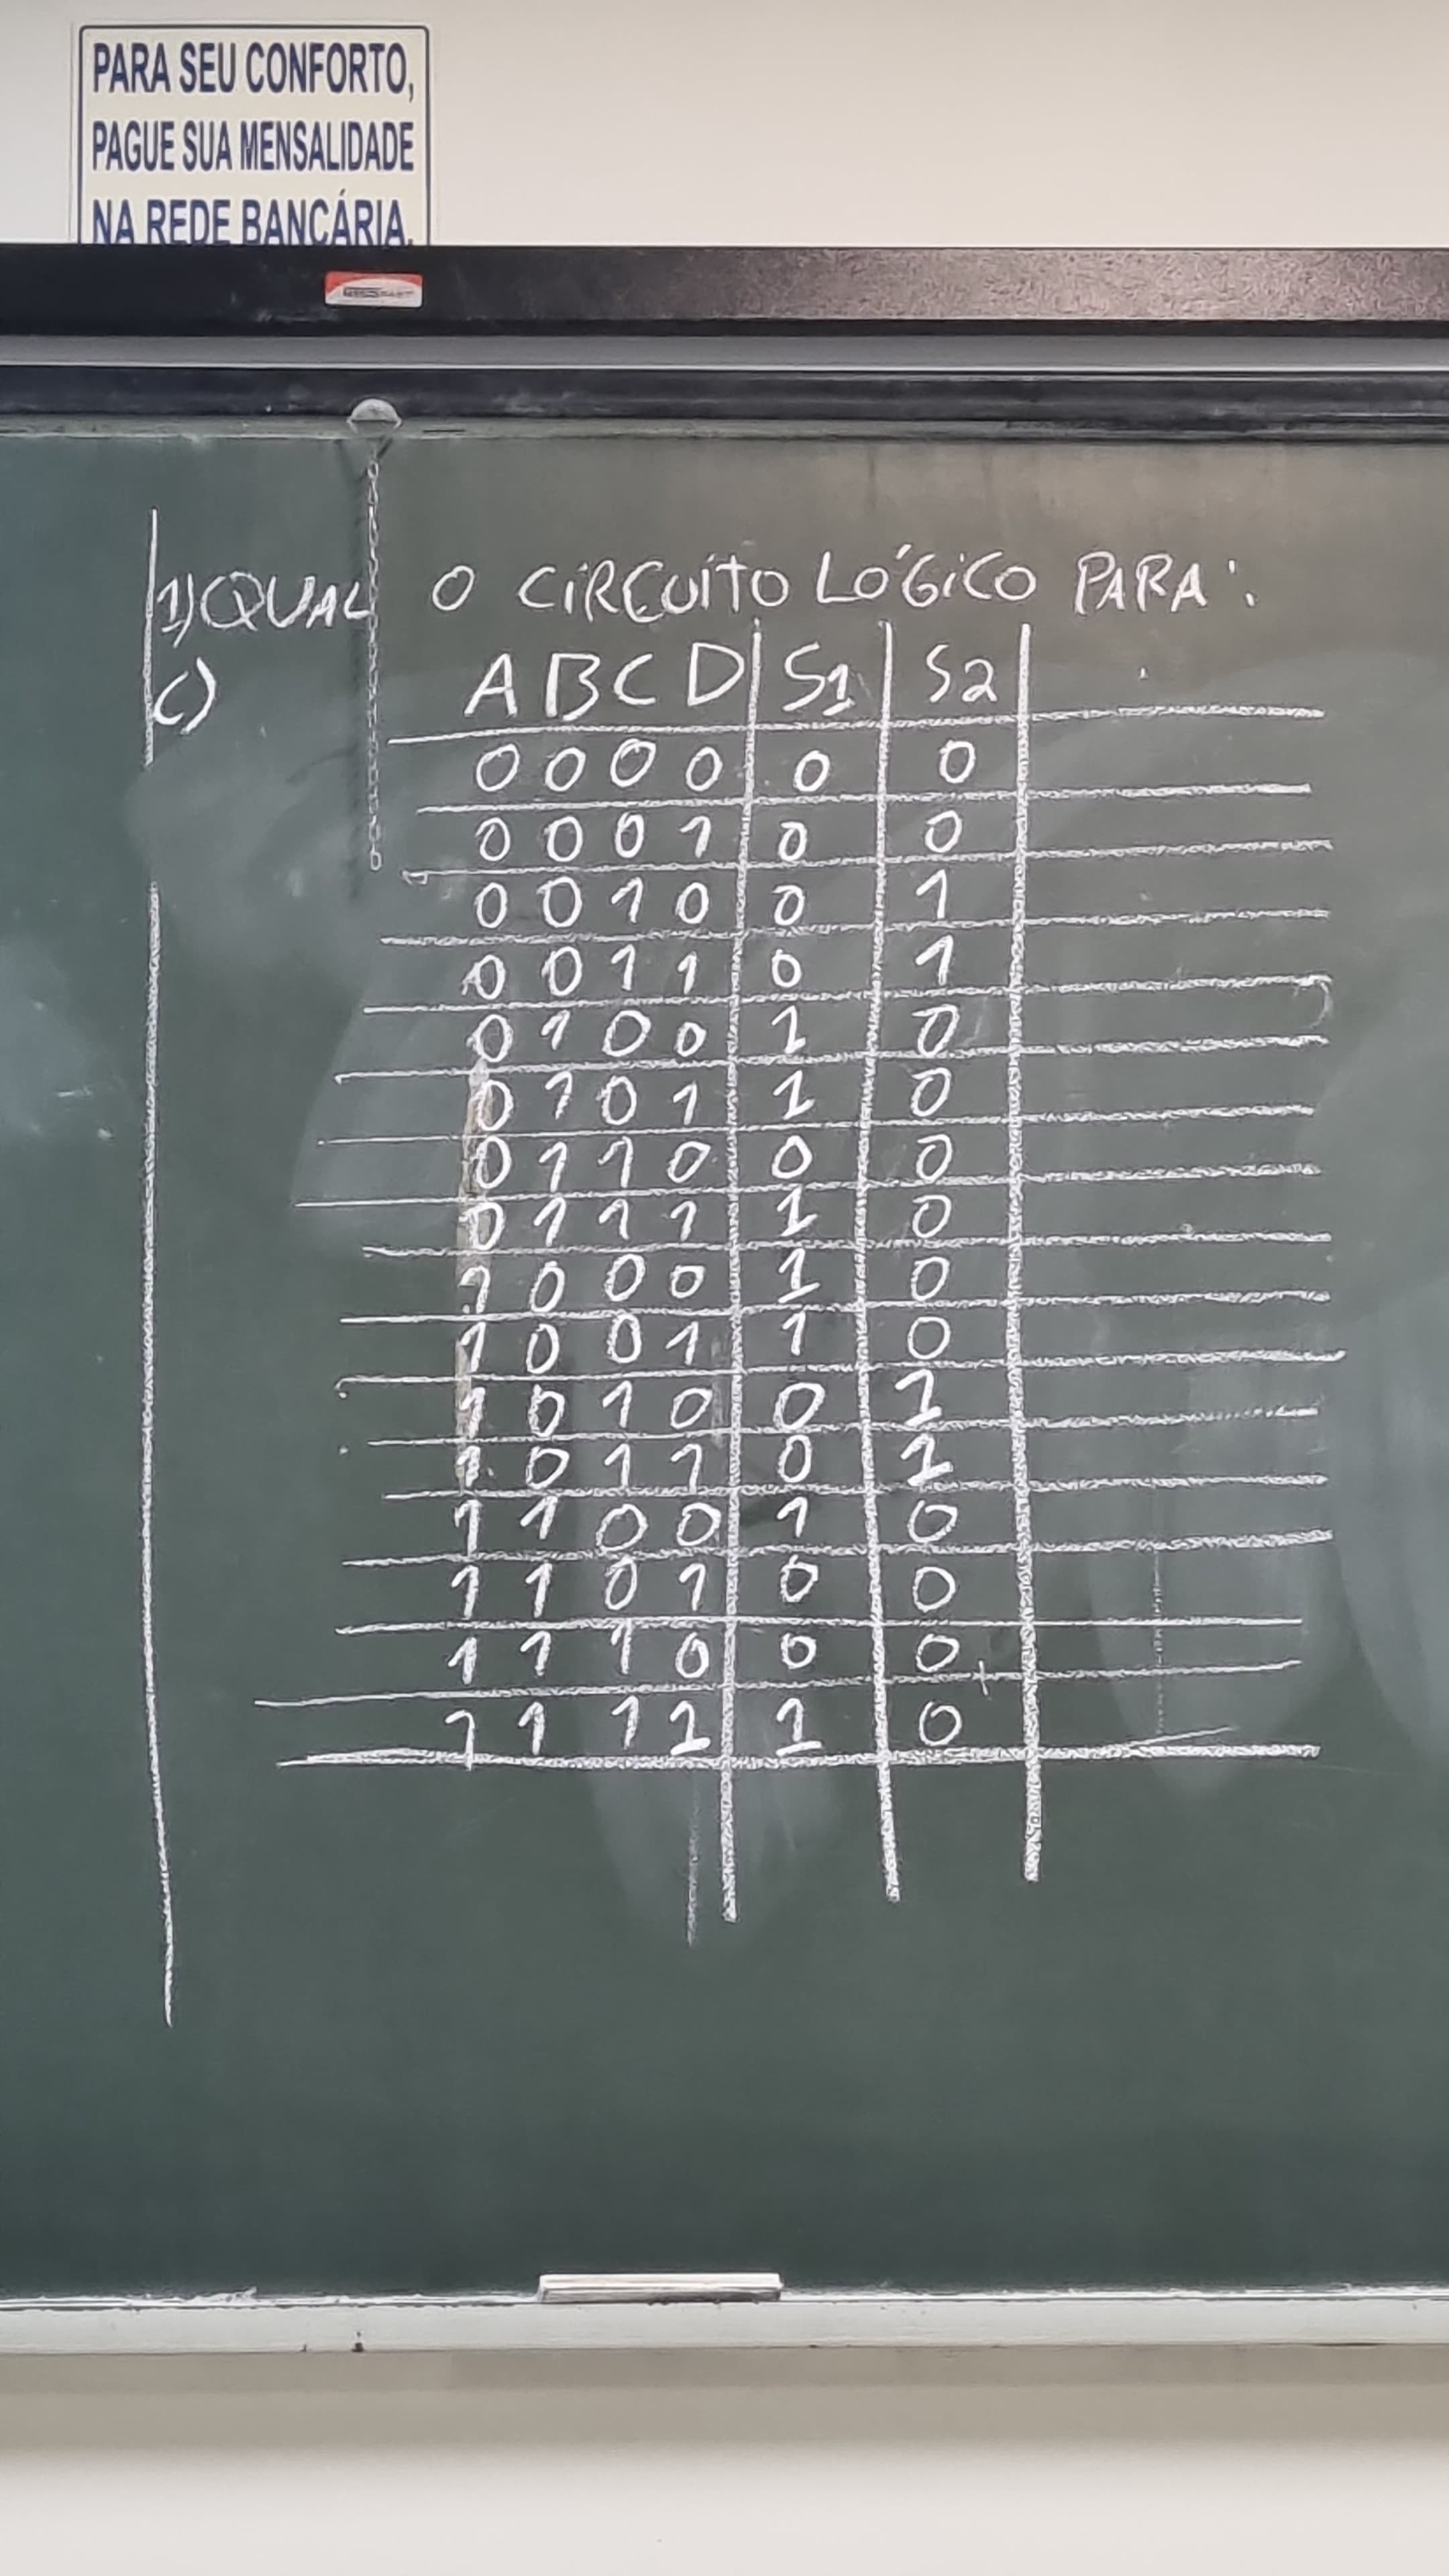 PARA SEU CONFORTO,
PAGUE SUA MENSALIDADE
NA REDE BANCÁRIA.
1) QUAL O CIRCUÍTO LÓGICO PARA:
c) A B C D | S1 | S2
0 0 0 0 | 0 | 0
0 0 0 1 | 0 | 0
0 0 1 0 | 0 | 1
0 0 1 1 | 0 | 1
0 1 0 0 | 1 | 0
0 1 0 1 | 1 | 0
0 1 1 0 | 0 | 0
0 1 1 1 | 1 | 0
1 0 0 0 | 1 | 0
1 0 0 1 | 1 | 0
1 0 1 0 | 0 | 1
1 0 1 1 | 0 | 1
1 1 0 0 | 1 | 0
1 1 0 1 | 0 | 0
1 1 1 0 | 0 | 0
1 1 1 1 | 1 | 0